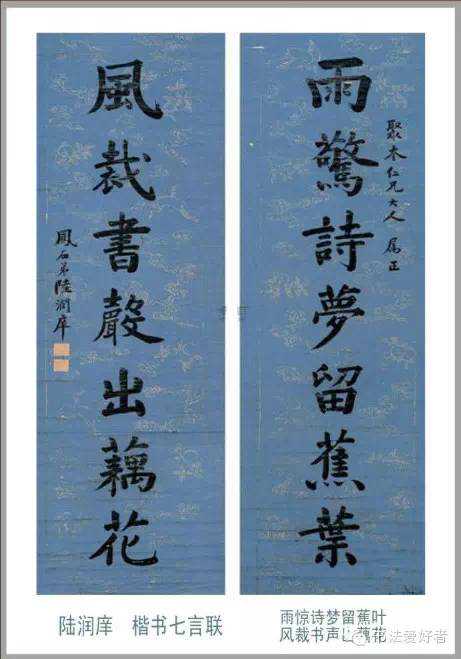 聚木仁兄大人 属正
雨驚詩夢留蕉葉
風裁書聲出藕花
鳳石弟陸潤庠
陆润庠 楷书七言联
雨惊诗梦留蕉叶
风裁书声出藕花
法爱好者